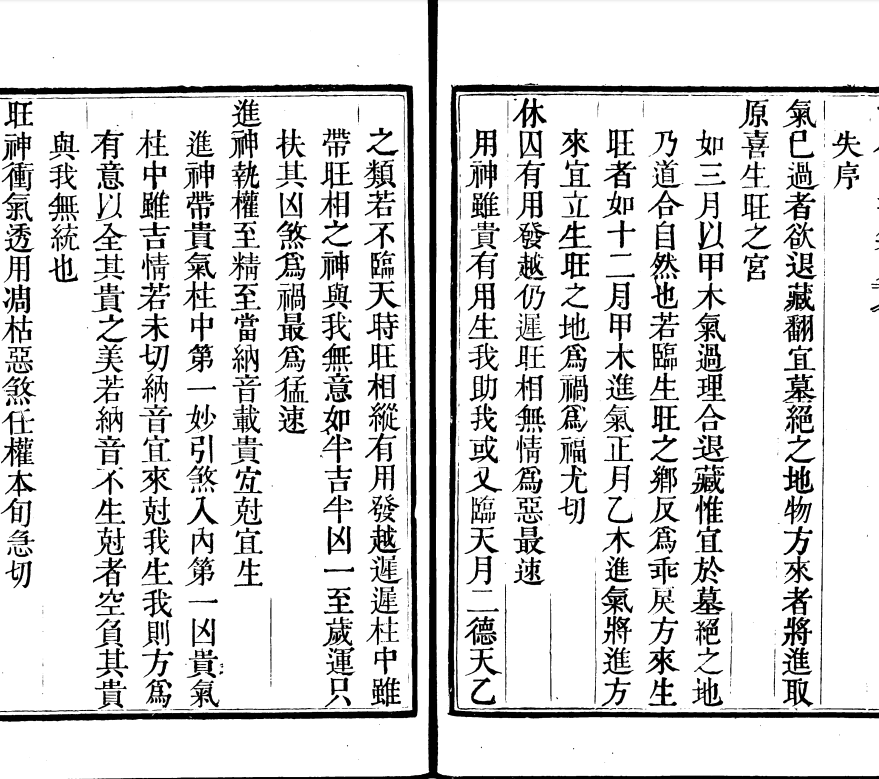 失序
氣已過者欲退藏翻宜墓絕之地物方來者將進取
原喜生旺之宮
如三月以甲木氣過理合退藏惟宜於墓絕之地
乃道合自然也若臨生旺之鄉反爲乖戾方來生
旺者如十二月甲木進氣正月乙木進氣將進方
來宜立生旺之地爲禍爲福尤切
休囚有用發越仍遲旺相無情爲惡最速
用神雖貴有用生我助我或又臨天月二德天乙
之類若不臨天時旺相縱有用發越遲遲柱中雖
帶旺相之神與我無意如半吉半凶一至歲運只
扶其凶煞爲禍最爲猛速
進神執權至精至當納音載貴宜尅宜生
進神帶貴氣柱中第一妙引煞入內第一凶貴氣
柱中雖吉情若未切納音宜來尅我生我則方爲
有意以全其貴之美若納音不生尅者空負其貴
與我無統也
旺神衝氣透用凋枯惡煞任權本旬急切